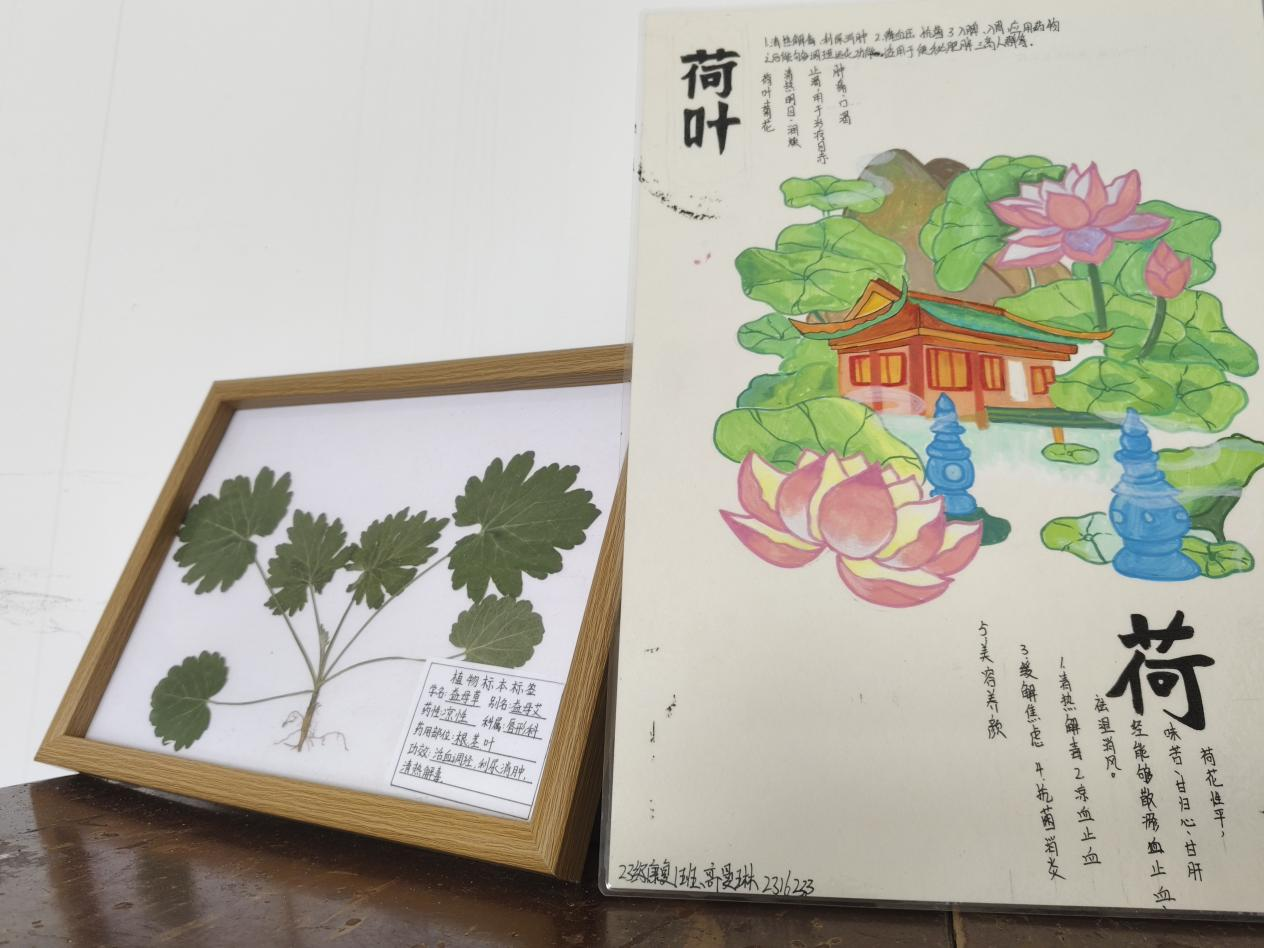 植物标本标签
学名:益母草 别名:益母艾
药性:凉性 科属:唇形科
药用部位:根.茎.叶
功效:活血调经,利尿消肿,
清热解毒
荷叶
1.清热解毒、利尿消肿 2.降血压、抗菌 3.入脾、入胃 应用药物
之后能够调理运化功能。适用于便秘肥胖三高人群等.
肿痛、口渴
止渴,用于治疗目赤
清热明目、润燥
荷叶菊花
荷
荷花性平,
味苦、甘归心、甘肝
经能够散瘀血止血、
祛湿消风。
1.清热解毒 2.凉血止血
3.缓解焦虑 4.抗菌消炎
5.美容养颜
23级康复1班、高曼琳 2316233